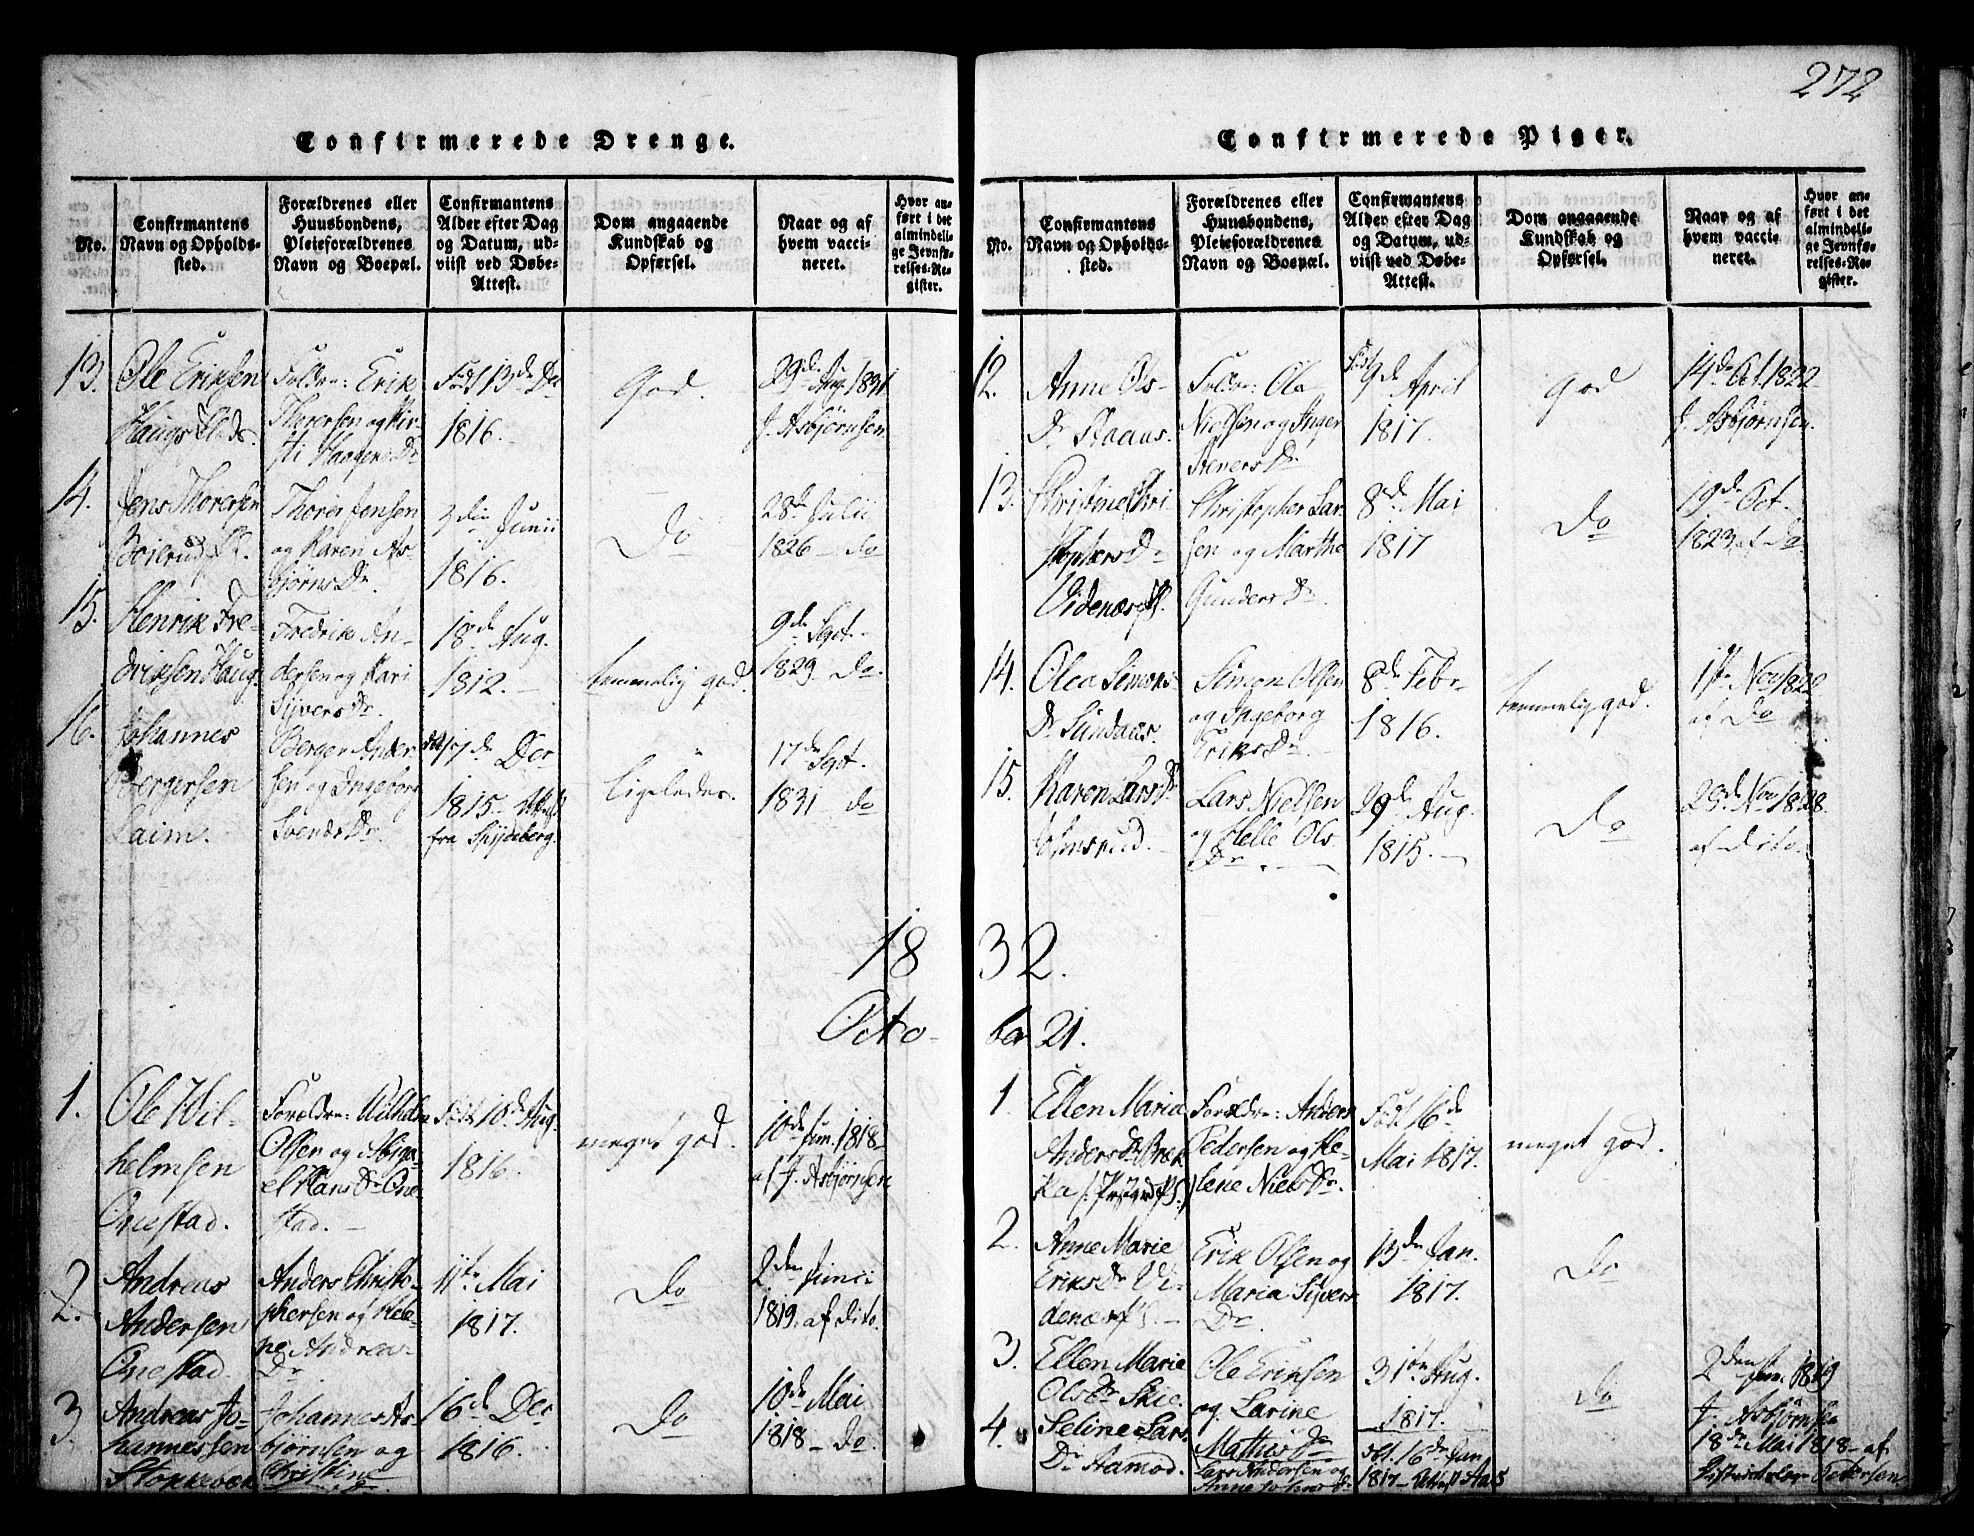 272
Confirmerede Drenge.
No.
Confirmantens
Navn og Opholds-
sted.
Forældrenes eller
Huusbondens,
Pleieforældrenes
Navn og Boepæl.
Confirmantens
Alder efter Dag
og Datum, ud-
viist ved Døbe-
Attest.
Dom angaaende
Kundskab og
Opførsel.
Naar og af
hvem vacci-
neret.
Hvor an-
ført i det
almindeli-
ge Jevnfø-
relses-Re-
gister.
13.
Ole Eriksen
Erik
Thorersen og Kir-
sti Haagens Dr
Født 13de Dec
1816.
God.
29de Aug. 1831
J. Asbjørnsen
14.
Jens Thorersen
Thorer Jensen
og Karen As-
bjørns Dr.
3die Junii
1816.
Do
28de Julii
1826 - do
15.
Henrik Fre-
driksen Haug.
Fredrik An-
dersen og Kari
Sivers Dr.
18de Aug.
1812. -
temmelig god.
9de Sept.
1829 do.
16.
Johannes
Bergersen
Laim.
Berger Ander-
sen og Ingeborg
Svends Dr.
17de Dec
1815. Attest
fra Spydeberg.
ligeledes.
17de Sept.
1831 - do
1832.
October 21.
1.
Ole Wil-
helmsen
Onestad.
Forældre: Wilhelm
Olsen og Abiga-
el Hans Dr One-
stad. -
Født 10de Aug.
1816.
meget god.
10de Jun. 1818
af J. Asbjørnsen
2.
Andreas
Andersen
Onestad.
Anders Christo-
phersen og Hele-
ne Andreas
Dr
11te Mai
1817.
Do
2den Junii
1819. af dito.
3.
Andreas Jo-
hannessen
Johannes As-
bjørnsen og
Christine
16de Dec
1816.
Do
10de Mai
1818 - do.
Confirmerede Piger.
No.
Confirmantens
Navn og Opholds-
sted.
Forældrenes eller
Huusbondens,
Pleieforældrenes
Navn og Boepæl.
Confirmantens
Alder efter Dag
og Datum, ud-
viist ved Døbe-
Attest.
Dom angaaende
Kundskab og
Opførsel.
Naar og af
hvem vacci-
neret.
Hvor an-
ført i det
almindeli-
ge Jevnfø-
relses-Re-
gister.
12.
Anne Ols-
Dr Haaus.
Ole
Nielsen og Inger
Steners Dr
Født 9de April
1817.
God
14de Oct. 1822
J. Asbjørnsen.
13.
Christine Chri-
stophers Dr
Christopher Lar-
sen og Marthe
Gunders Dr.
8de Mai
1817
Do
19de Oct.
1823, af Do
14.
Olea Simons
Dr Sundaas.
Simon Olsen
og Ingeborg
Eriks Dr
8de Febr
1816.
temmelig god.
1ste Nov 1822
af Do
15.
Karen Lars Dr
Johnsrud.
Lars Nielsen
og Helle Ols
Dr.
29de Aug.
1815.
Do
29de Nov 1828.
af dito.
1
Ellen Maria
Anders Dr Bræk-
ka
Forældre: Anders
Pedersen og He-
lene Niels Dr.
Født 16de
Mai 1817.
meget god.
2.
Anne Marie
Eriks Dr Vi-
denæs
Erik Olsen og
Maria Sivers
Dr.
13de Jan.
1817.
Do
3.
Ellen Marie
Ols Dr Skie.
Ole Eriksen
og Larine
Mathias Dr
31te Aug.
1817.
Do
2den Jun. 1819
J. Asbjørnsen
4.
Seline Lars
Dr Aamod.
Lars Andersen og
Anne Johns Dr
16de Jan
1817 - Attest Aas
18de Mai 1818 - af
Pedersen